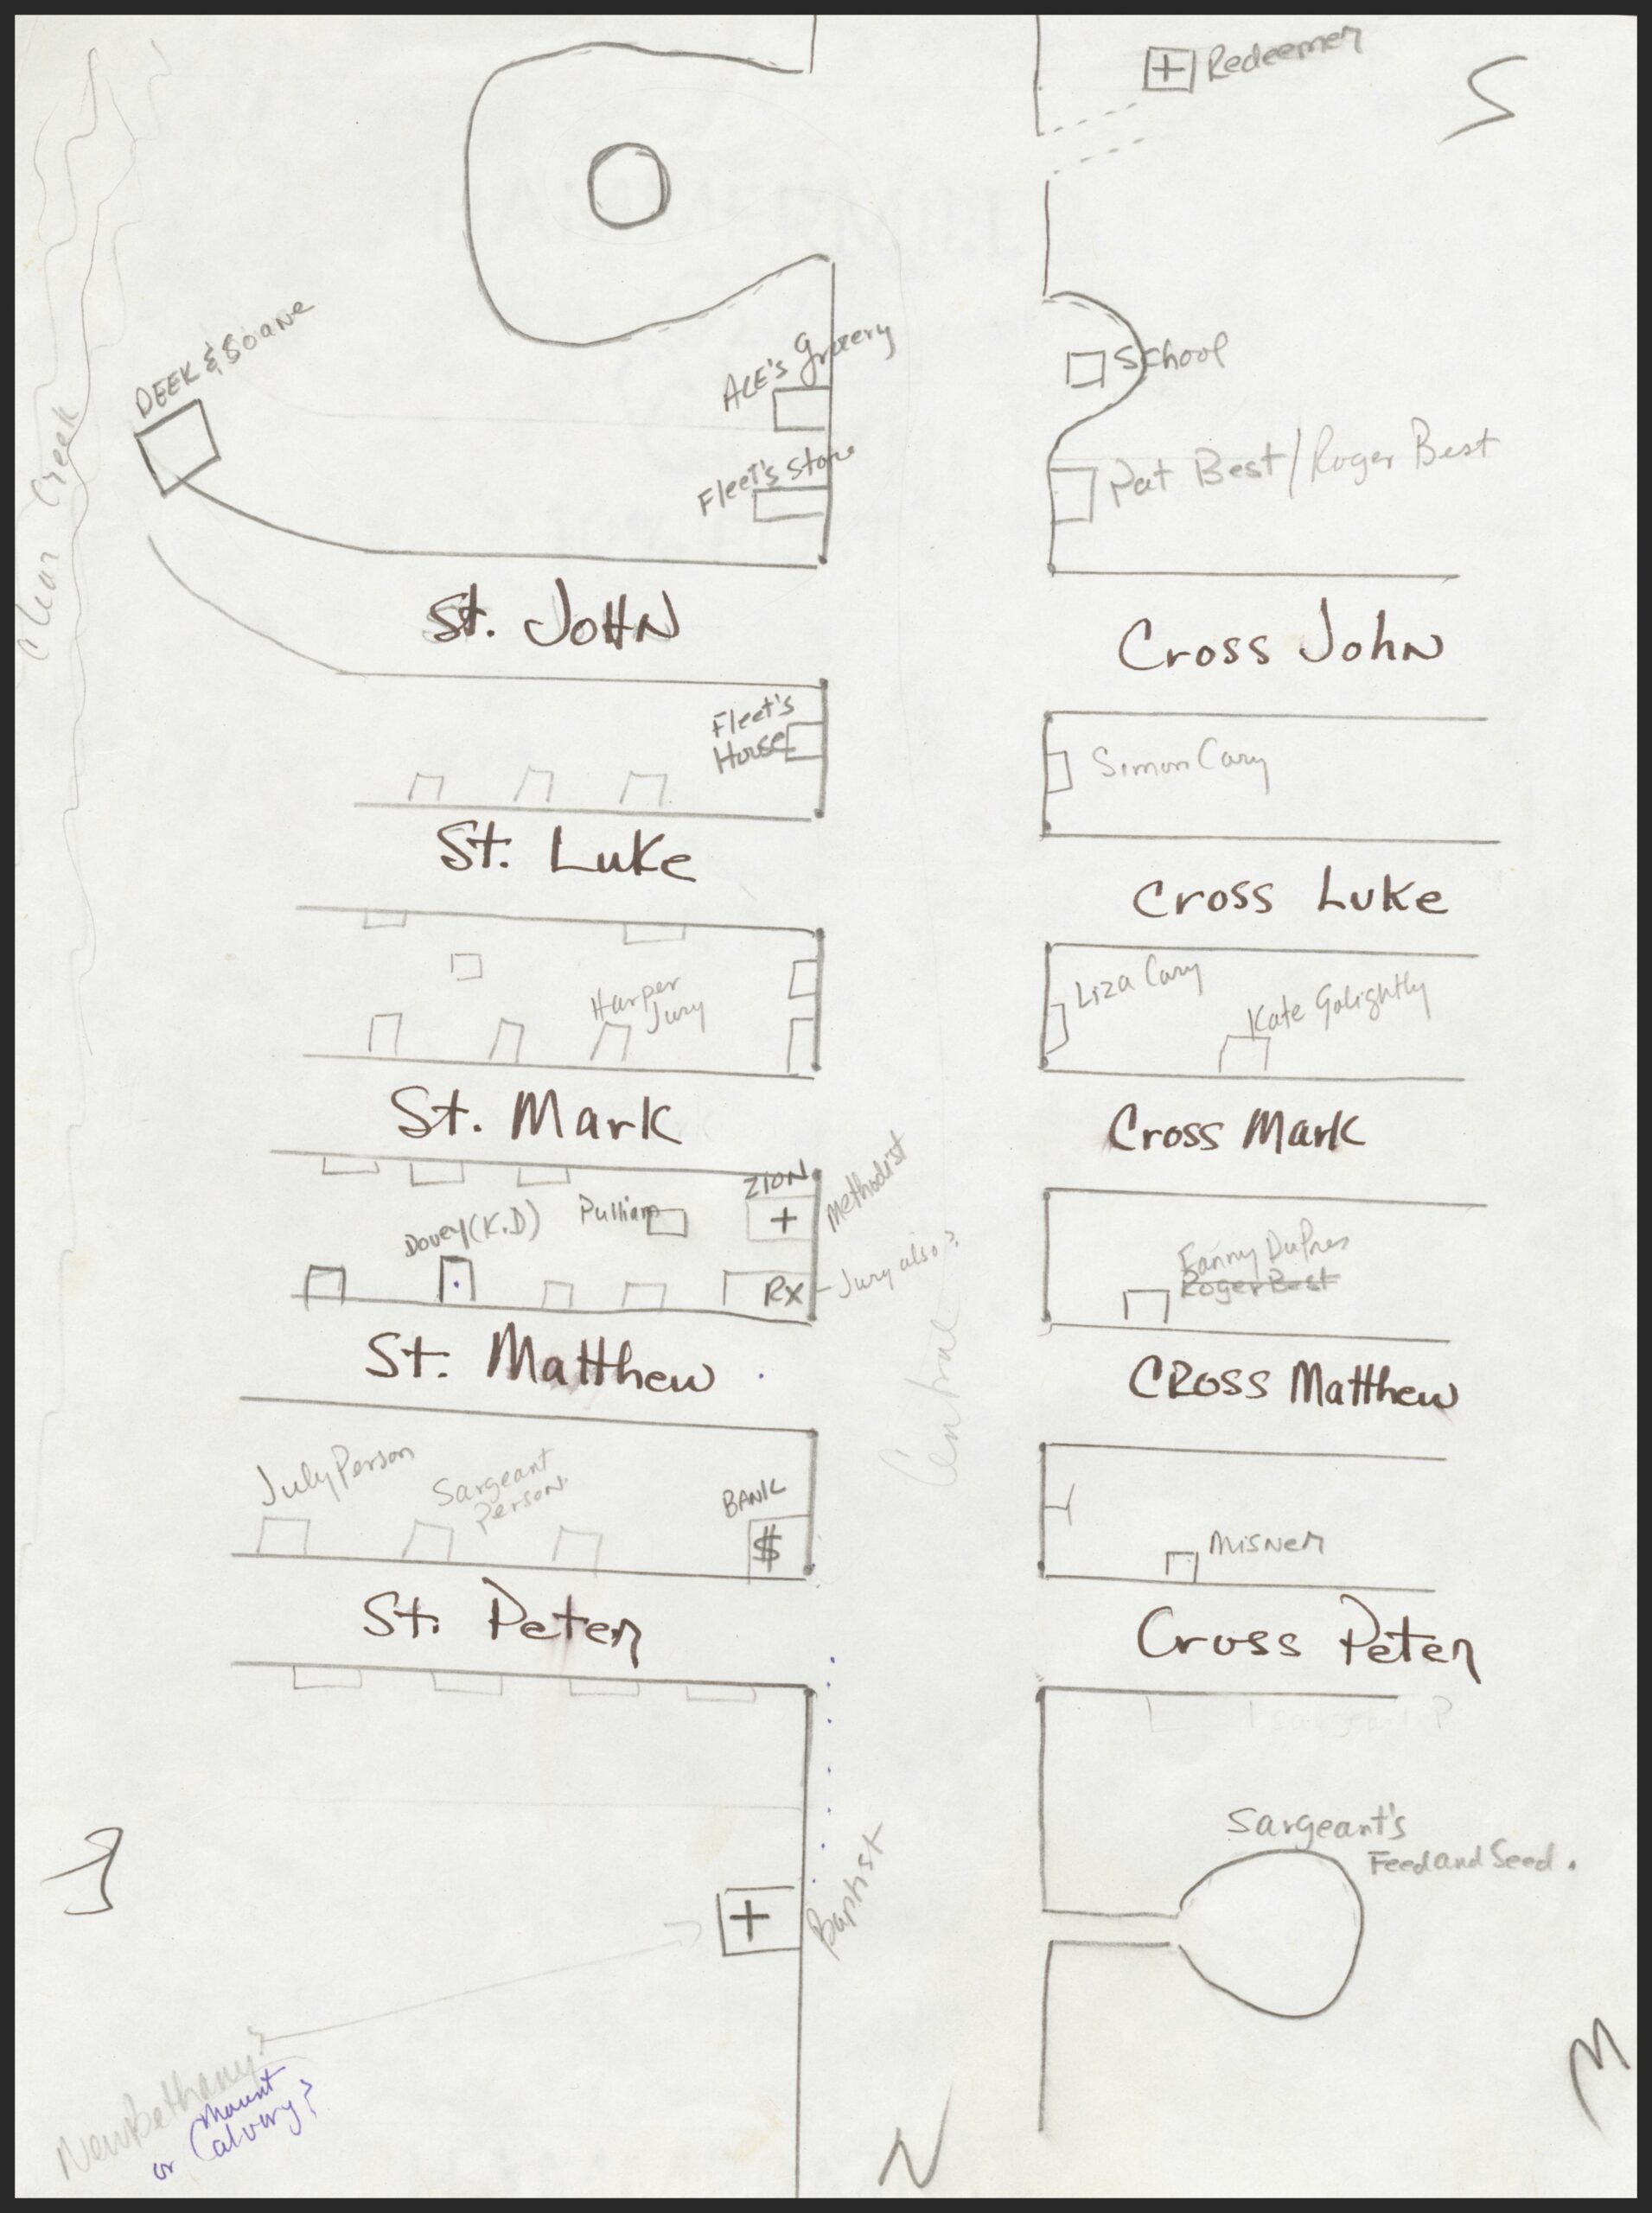 Redeemer
S
DEEK & SOANE
ACE's Grocery
School
Fleet's store
Pat Best/Roger Best
Clear Creek
St. JOHN
Cross John
Fleet's
House
Simon Cary
St. Luke
Cross Luke
Harper
Jury
Liza Cary
Kate Golightly
St. Mark
Cross Mark
ZION
+
Methodist
Pulliam
Dovey (K.D)
RX
Jury also?
Fanny DuPres
Roger Best
Central
St. Matthew
CROSS Matthew
July Person
Sargeant
Person.
BANK
$
Misner
St. Peter
Cross Peter
Sargeant P
Sargeant's
Feed and Seed.
+
Baptist
New Bethany?
or Mount
Calvary?
N